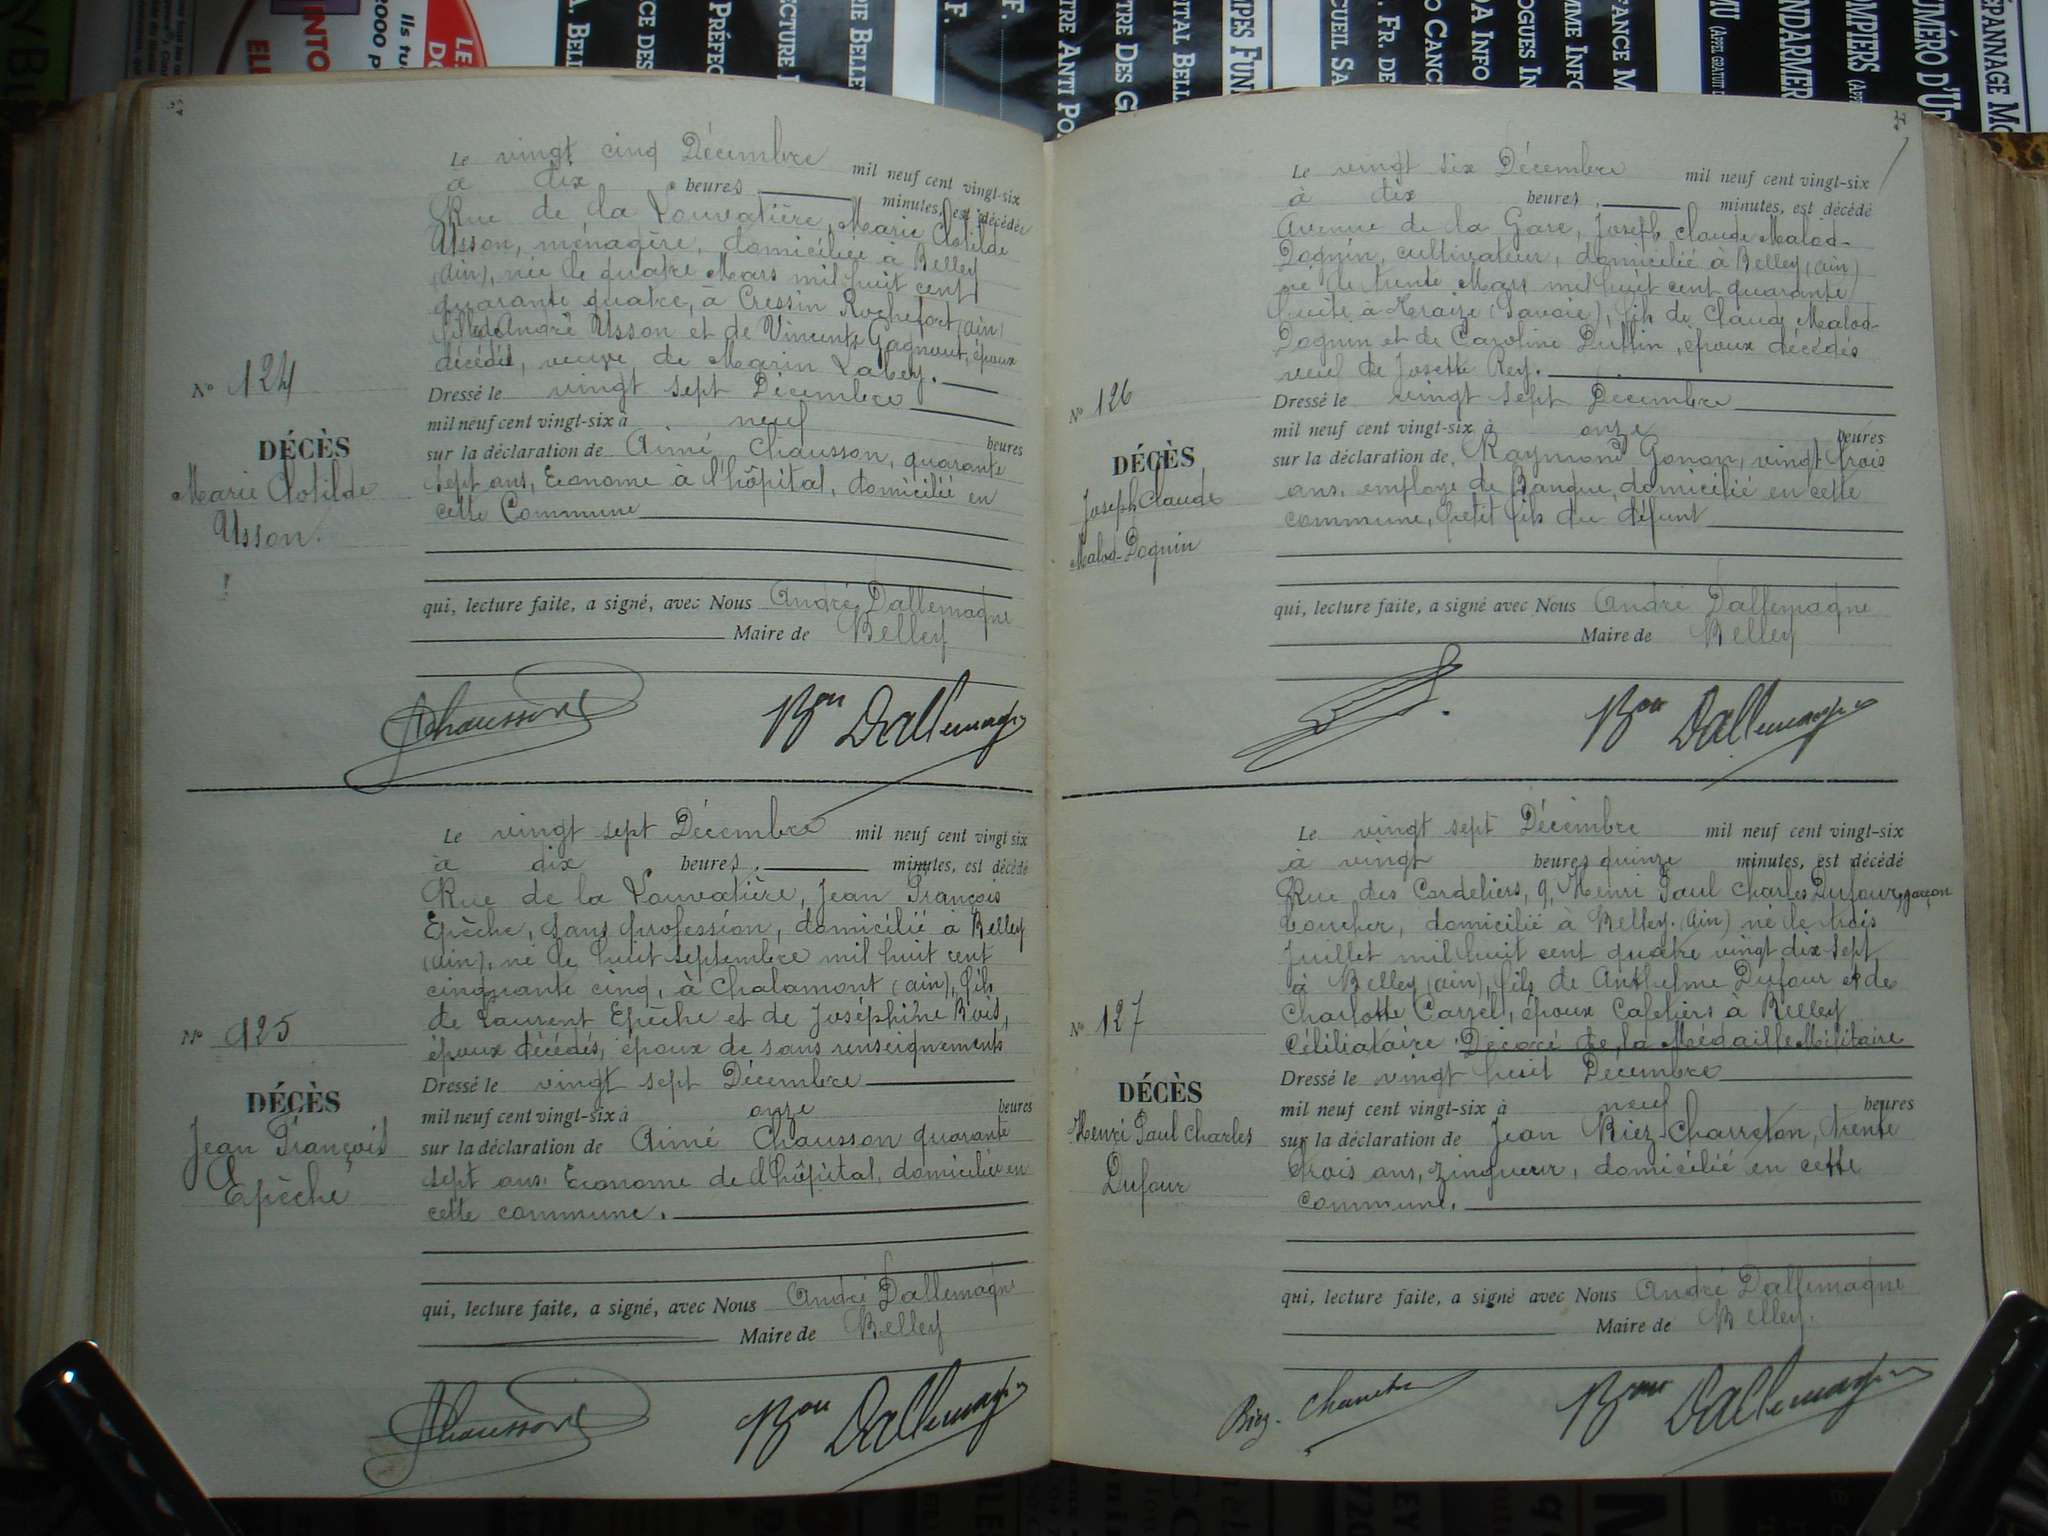 Le vingt cinq Décembre mil neuf cent vingt-six
à dix heures, minutes, est décédée
Rue de la Louvatière, Marie Clotilde
Usson, ménagère, domiciliée à Belley
(Ain), née le quatre Mars mil huit cent
quarante quatre, à Cressin Rochefort (Ain)
fille d'André Usson et de Vincente Gagneux, époux
décédés, veuve de Marin Labey.
Nº 124
Dressé le vingt sept Décembre
mil neuf cent vingt-six à neuf heures
DÉCÈS
Marie Clotilde
Usson.
sur la déclaration de Aimé Chausson, quarante
sept ans, Econome à l'hôpital, domicilié en
cette Commune
qui, lecture faite, a signé, avec Nous André Dallemagne
Maire de Belley
Chausson
Bon Dallemagne
Le vingt sept Décembre mil neuf cent vingt six
à dix heures, minutes, est décédé
Rue de la Louvatière, Jean François
Epèche, sans profession, domicilié à Belley
(ain), né le huit septembre mil huit cent
cinquante cinq, à Chalamont (ain), fils
de Laurent Epèche et de Joséphine Bois,
époux décédés, époux de sans renseignements
Nº 125
Dressé le vingt sept Décembre
mil neuf cent vingt-six à onze heures
DÉCÈS
Jean François
Epèche
sur la déclaration de Aimé Chausson quarante
sept ans, Econome de l'hôpital, domicilié en
cette commune.
qui, lecture faite, a signé, avec Nous André Dallemagne
Maire de Belley
Chausson
Bon Dallemagne
Le vingt six Décembre mil neuf cent vingt-six
à dix heures, minutes, est décédé
Avenue de la Gare, Joseph Claude Malod-
Dognin, cultivateur, domicilié à Belley, (ain)
né le trente Mars mil huit cent quarante
huit à Traize (Savoie), fils de Claude Malod-
Dognin et de Caroline Dullin, époux décédés
veuf de Josette Rey.
Nº 126
Dressé le vingt sept Décembre
mil neuf cent vingt-six à onze heures
DÉCÈS
Joseph Claude
Malod-Dognin
sur la déclaration de Raymond Gonon, vingt trois
ans, employé de Banque, domicilié en cette
commune, petit fils du défunt
qui, lecture faite, a signé avec Nous André Dallemagne
Maire de Belley
Bon Dallemagne
Le vingt sept Décembre mil neuf cent vingt-six
à vingt heures quinze minutes, est décédé
Rue des Cordeliers, 9, Henri Paul Charles Dufour, garçon
boucher, domicilié à Belley. (ain) né le trois
Juillet mil huit cent quatre vingt dix sept
à Belley (ain), fils de Anthelme Dufour et de
Charlotte Carrel, époux Cafetiers à Belley
Célibataire Décoré de la Médaille Militaire
Nº 127
Dressé le vingt huit Décembre
mil neuf cent vingt-six à neuf heures
DÉCÈS
Henri Paul Charles
Dufour
sur la déclaration de Jean Biez-Charreton, trente
trois ans, zingueur, domicilié en cette
commune.
qui, lecture faite, a signé avec Nous André Dallemagne
Maire de Belley.
Biez-Charreton
Bon Dallemagne